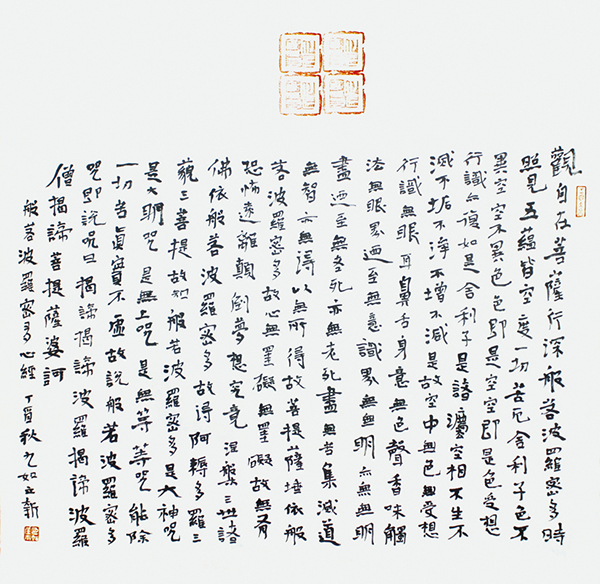 觀自在菩薩行深般若波羅密多時
照見五蘊皆空度一切苦厄舍利子色不
異空空不異色色即是空空即是色受想
行識亦復如是舍利子是諸灋空相不生不
滅不垢不淨不增不減是故空中無色無受想
行識無眼耳鼻舌身意無色聲香味觸
法無眼界迺至無意識界無無明亦無無明
盡迺至無老死亦無老死盡無苦集滅道
無智亦無得以無所得故菩提薩埵依般
若波羅密多故心無罣礙無罣礙故無有
恐怖遠離顛倒夢想究竟涅槃三世諸
佛依般若波羅密多故得阿耨多羅三
藐三菩提故知般若波羅密多是大神咒
是大明咒是無上咒是無等等咒能除
一切苦真實不虛故說般若波羅密多
咒即說咒曰揭諦揭諦波羅揭諦波羅
僧揭諦菩提薩婆訶
般若波羅密多心經 丁酉秋九如立新